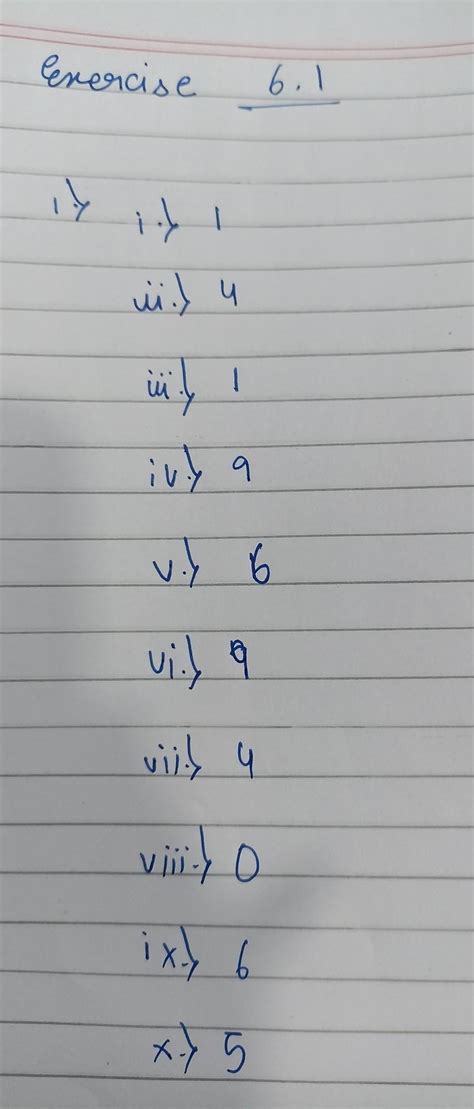 Exercise 6.1
1.) i.) 1
ii.) 4
iii.) 1
iv.) 9
v.) 6
vi.) 9
vii.) 4
viii.) 0
ix.) 6
x.) 5